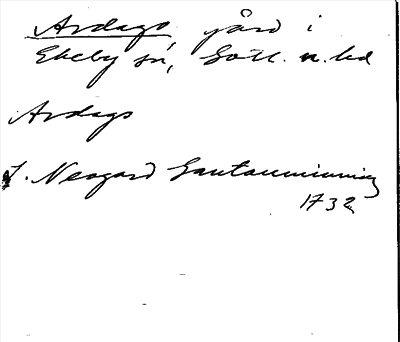 Ardags gård i
Ekeby sn, Gotl. n. hd
Ardags
J. Neogard Gautauminning
1732